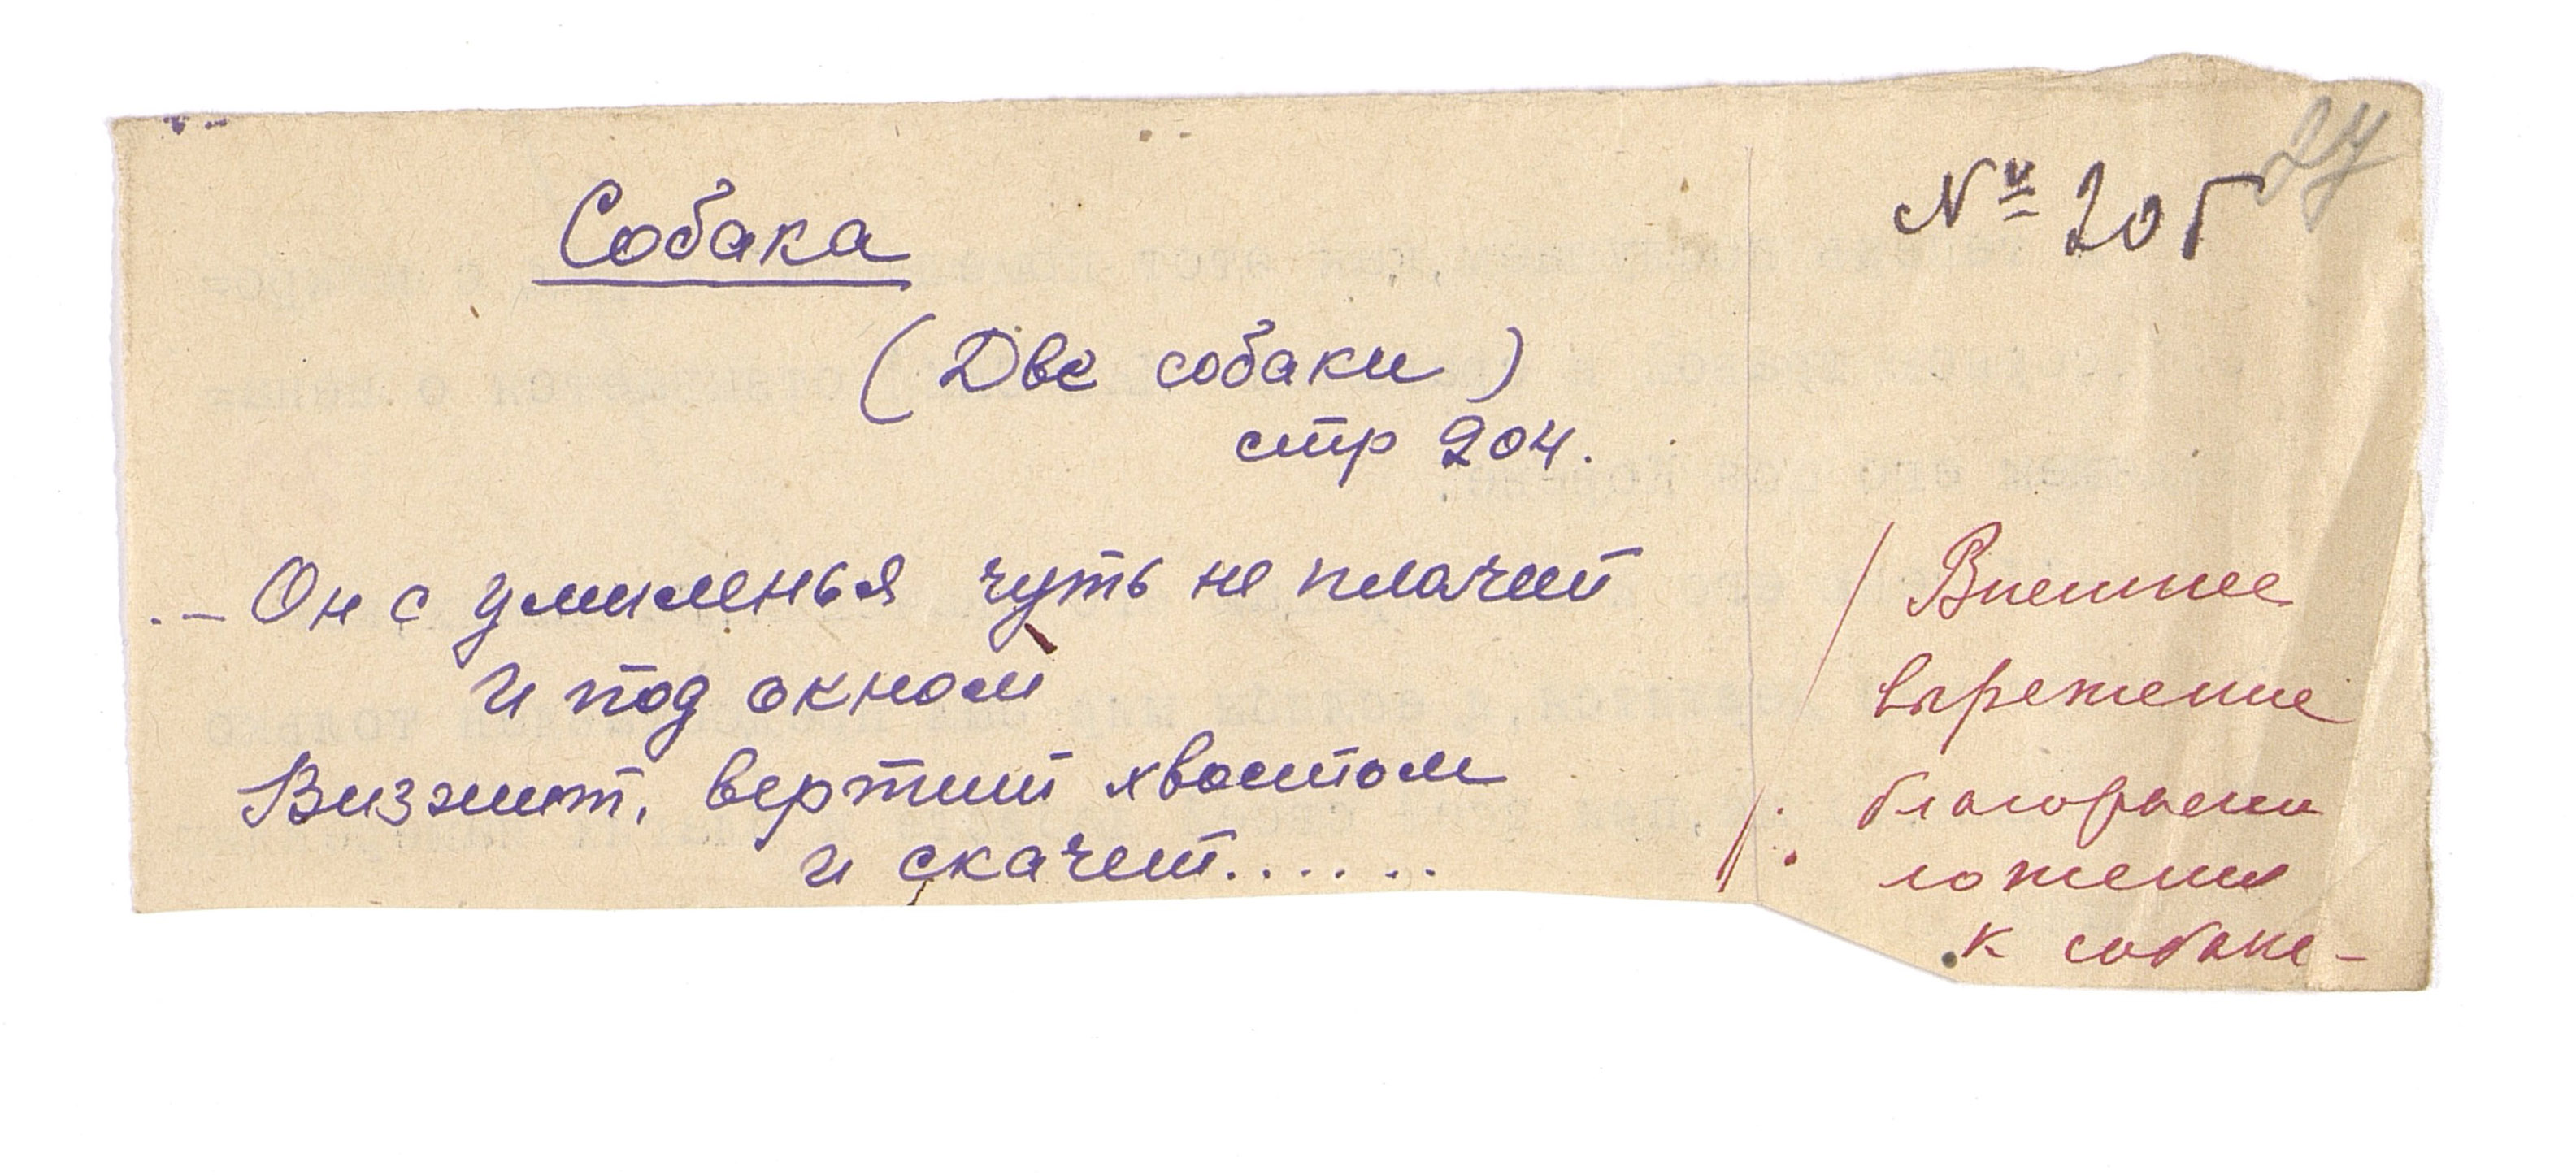 27
№ 205
Собака
(Две собаки)
стр 204.
.— Он с умиленья чуть не плачет
и под окном
Визжит, вертит хвостом
и скачет......
Внешнее
вырежение
к собаке—